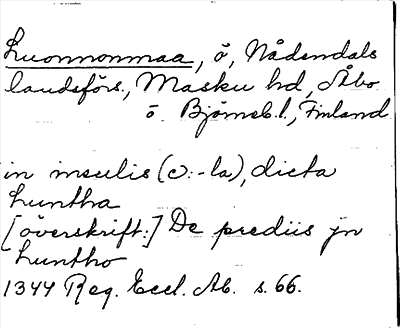 Luonnonmaa, ö, Nådendals
landsförs., Masku hd, Åbo
o. Björneb. l., Finland
in insulis (ɔ: -la), dicta
Luntha
[överskrift:] De prediis jn
Luntho
1344 Reg. Eccl. Ab. s. 66.